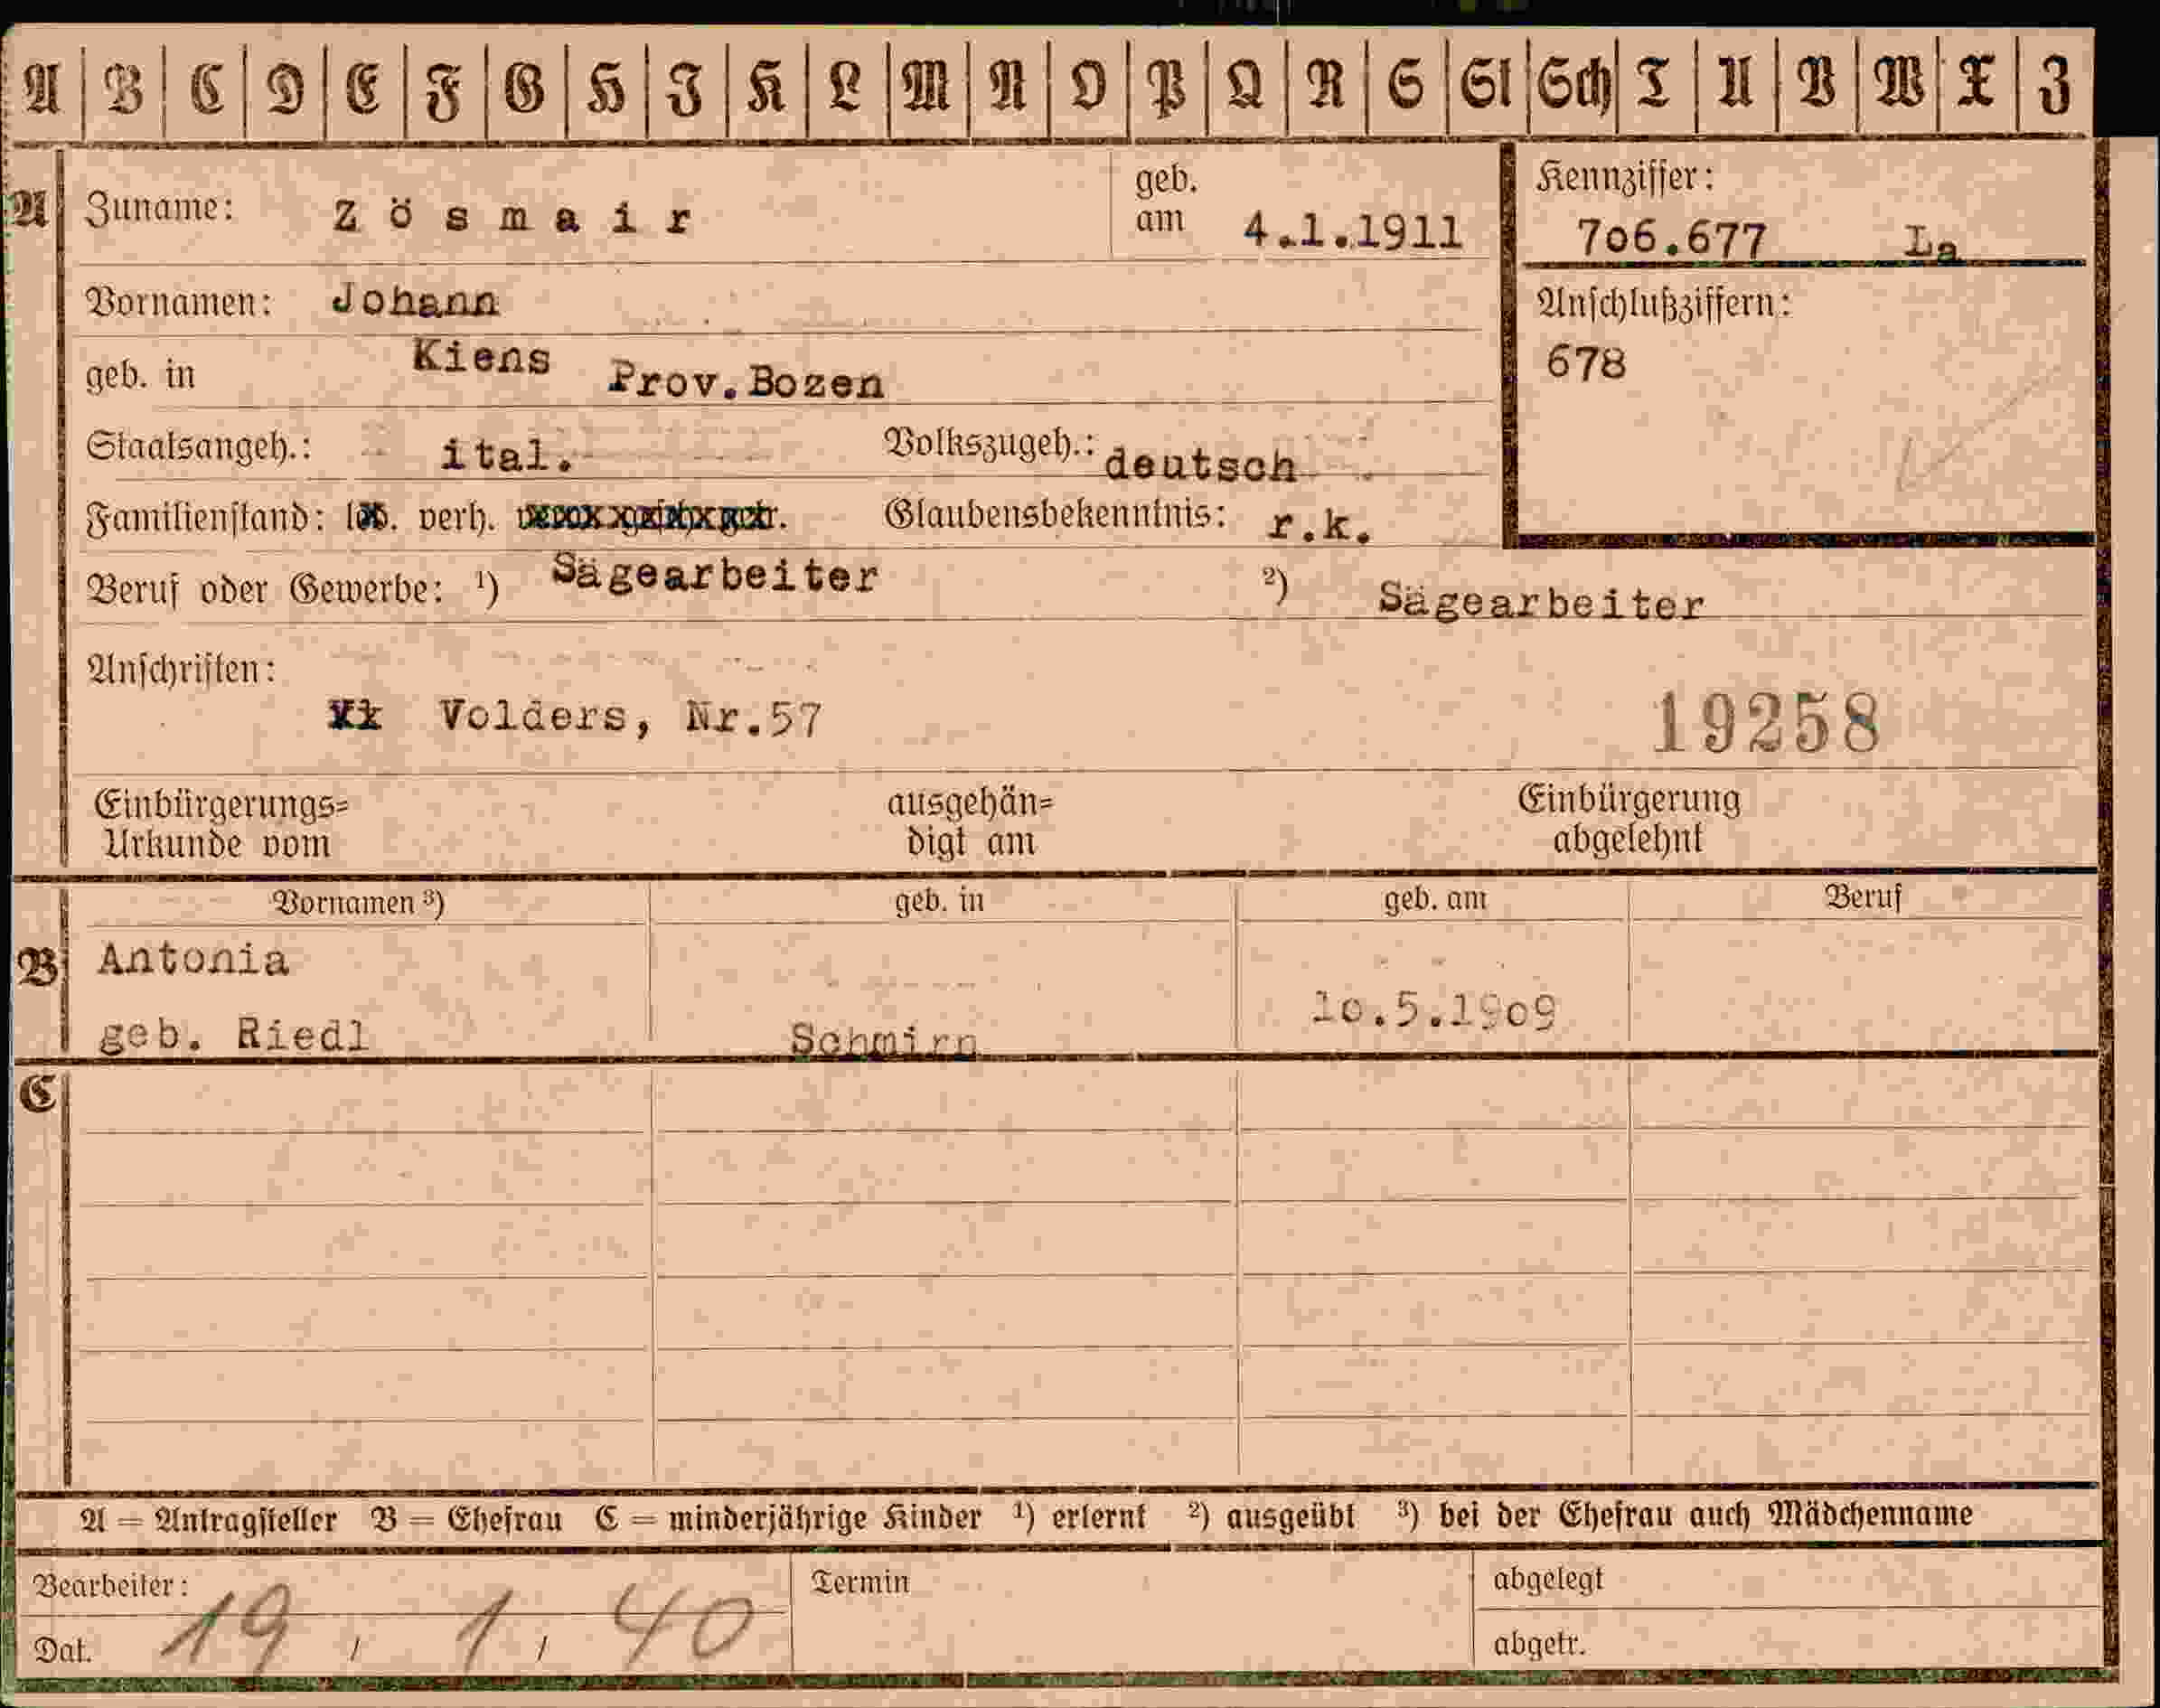 A B C D E F G H I K L M N O P Q R S St Sch T U V W X Z
A Zuname: Zösmair geb. am 4.1.1911 Kennziffer: 7o6.677 La
Vornamen: Johann Anschlußziffern:
geb. in Kiens Prov.Bozen 678
Staatsangeh.: ital. Volkszugeh.: deutsch
Familienstand: verh. Glaubensbekenntnis: r.k.
Beruf oder Gewerbe: 1) Sägearbeiter 2) Sägearbeiter
Anschriften:
Volders, Nr.57 19258
Einbürgerungs= ausgehän= Einbürgerung
Urkunde vom digt am abgelehnt
Vornamen 3) geb. in geb. am Beruf
B Antonia
geb. Riedl Schmirn 1o.5.19o9
C
A = Antragsteller B = Ehefrau C = minderjährige Kinder 1) erlernt 2) ausgeübt 3) bei der Ehefrau auch Mädchenname
Bearbeiter: Termin abgelegt
Dat. 19 / 1 / 40 abgetr.